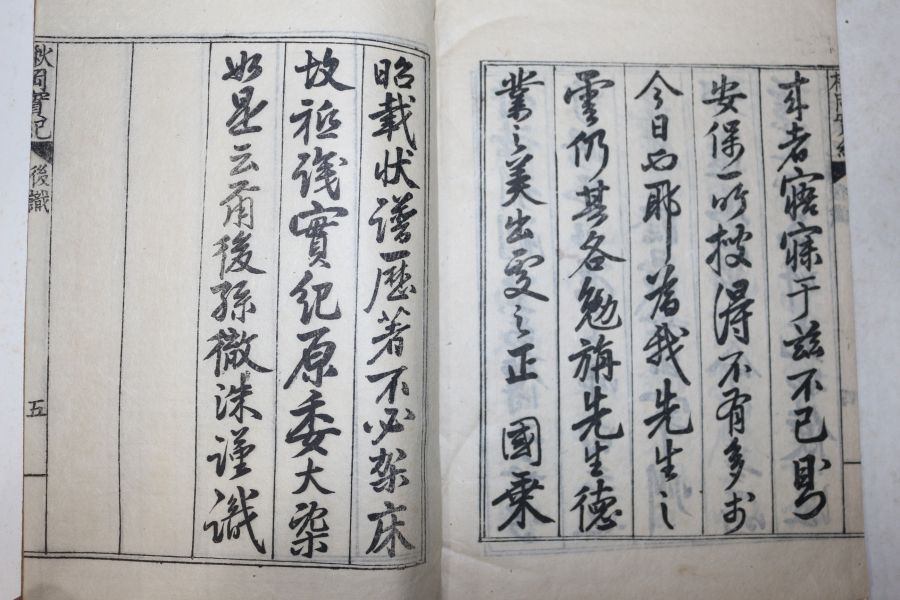 者寤寐于玆不已則
安保一所搜得不有多於
今日也耶為我先生之
雲仍其各勉旃先生德
業之美出處之正 國乘
昭載狀譜歷著不必架床
故祗識實紀原委大槩
如是云爾後孫徽洙謹識
秋岡實紀 後識 五